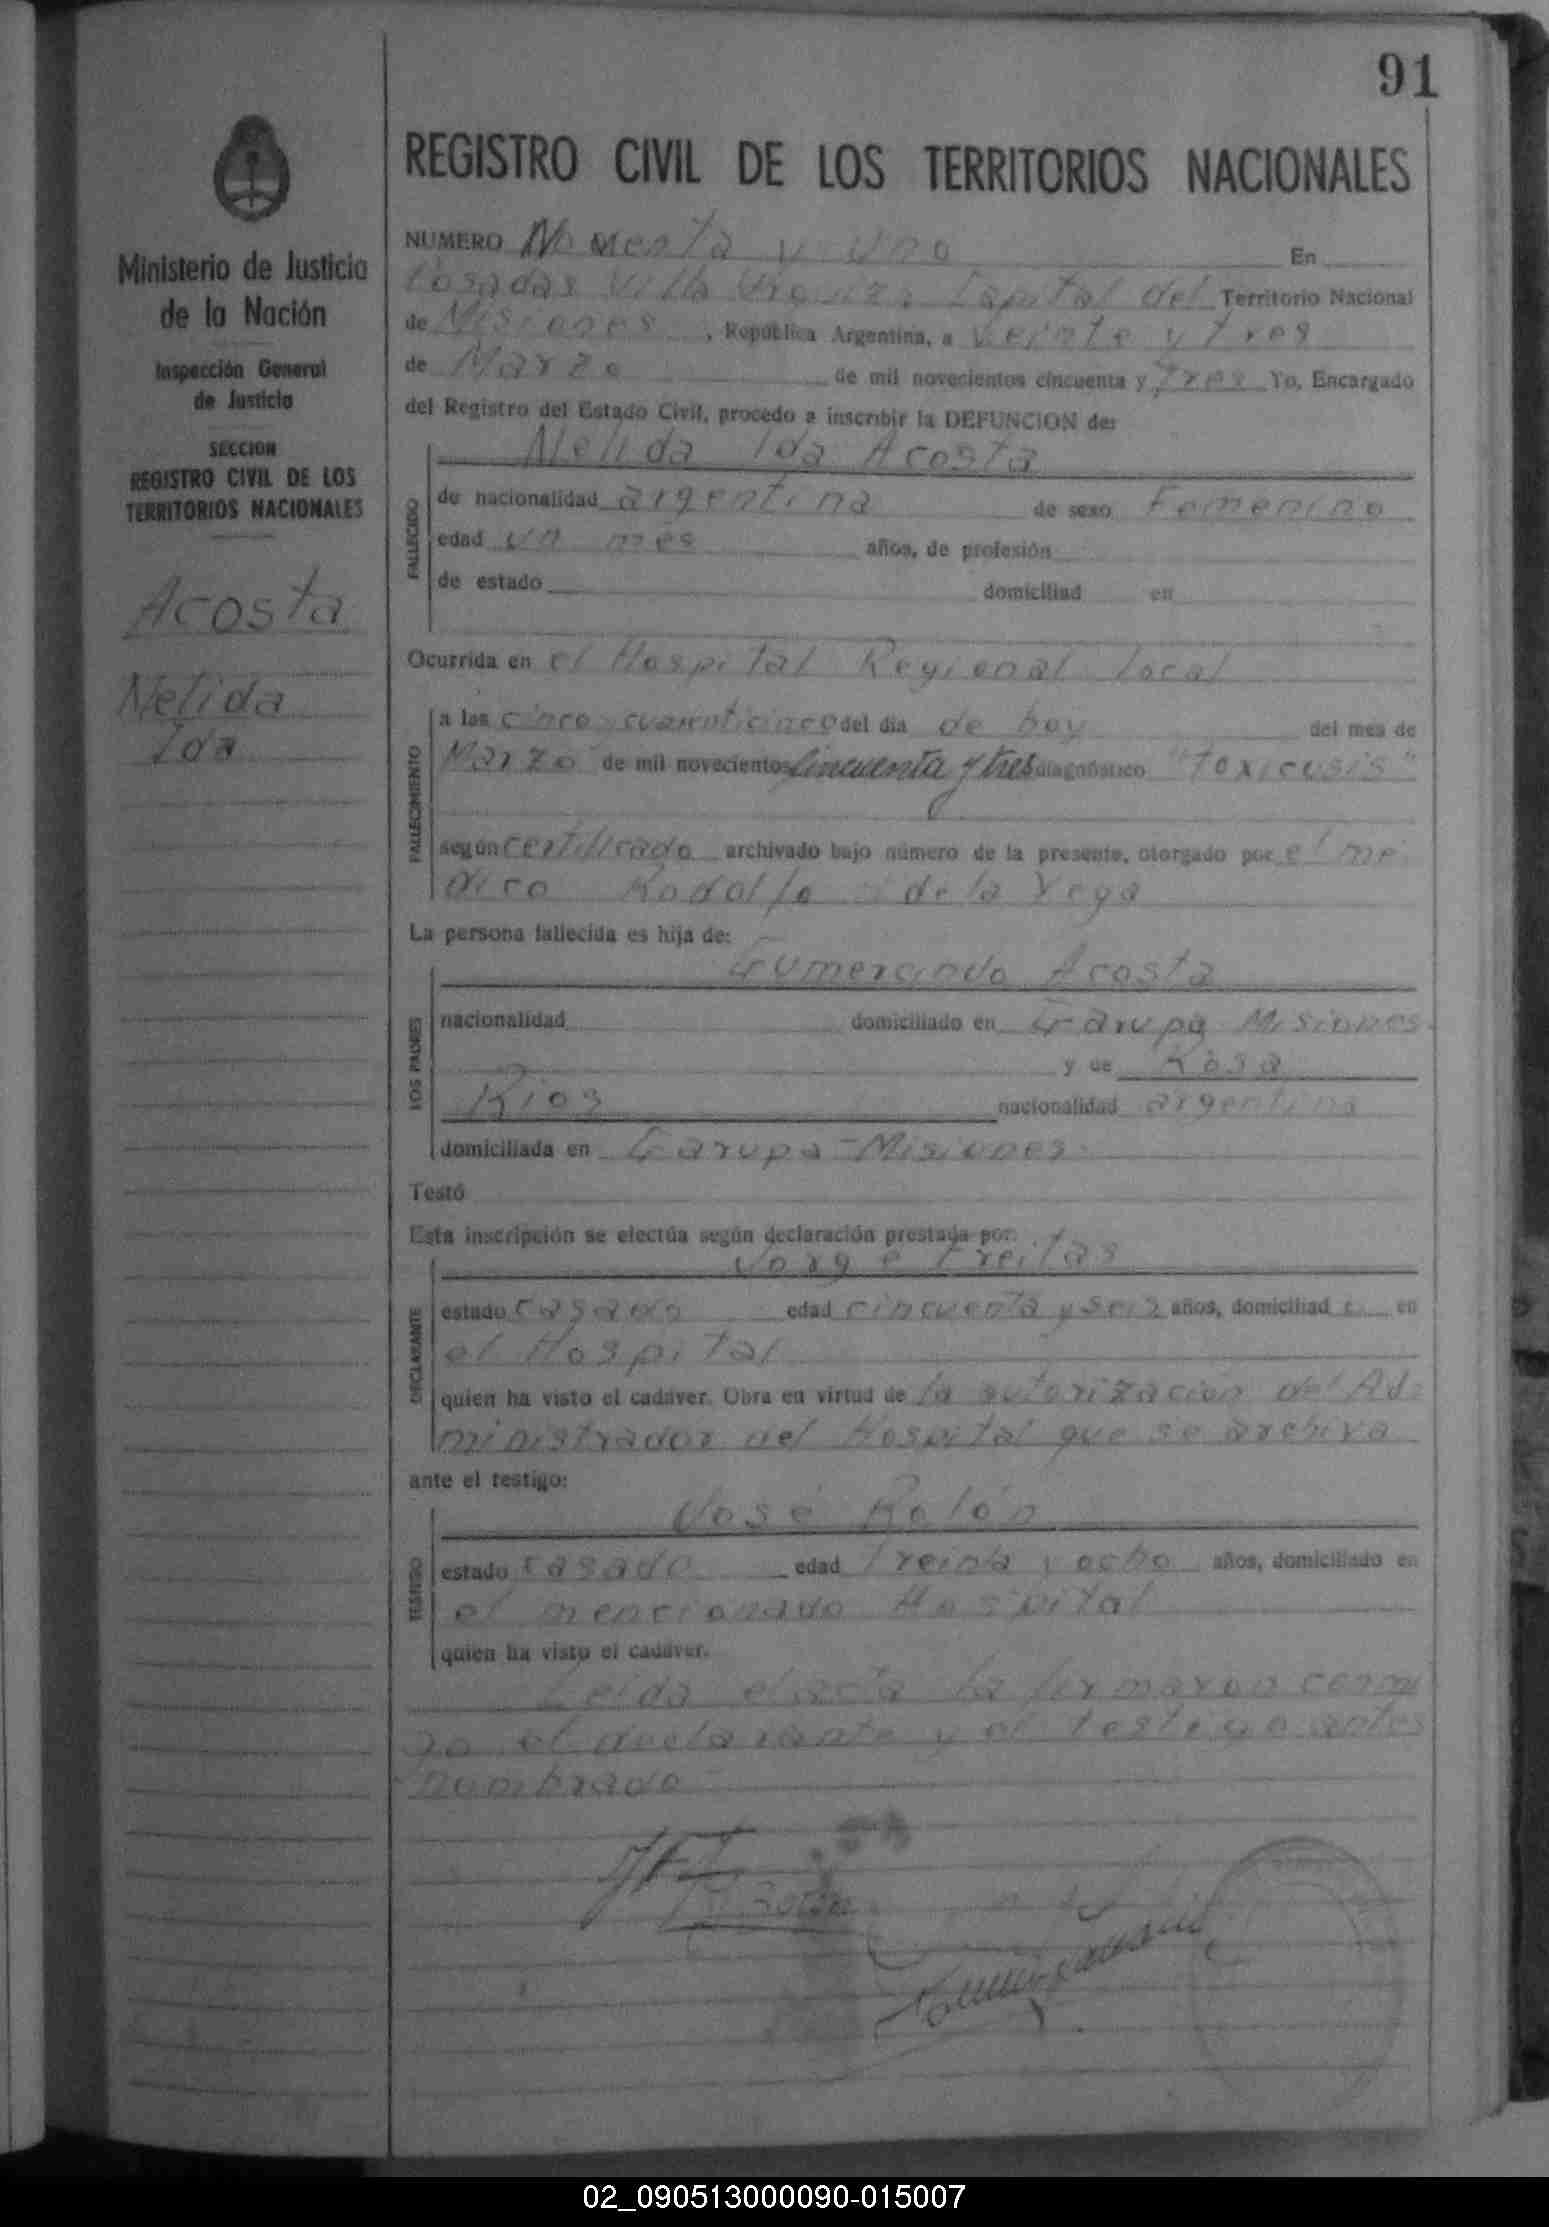 91
REGISTRO CIVIL DE LOS TERRITORIOS NACIONALES
Ministerio de Justicia
de la Nación
Inspección General
de Justicia
SECCION
REGISTRO CIVIL DE LOS
TERRITORIOS NACIONALES
Acosta
Nelida
Ida
NUMERO Noventa y uno En
Posadas Villa Capital del Territorio Nacional
de Misiones, República Argentina, a veinte y tres
de Marzo de mil novecientos cincuenta y tres Yo, Encargado
del Registro del Estado Civil, procedo a inscribir la DEFUNCION de:
Nelida Ida Acosta
FALLECIDO
de nacionalidad argentina de sexo Femenino
edad un mes años, de profesión
de estado domiciliad en
Ocurrida en el Hospital Regional local
FALLECIMIENTO
a las cinco y cuarenticinco del día de hoy del mes de
Marzo de mil novecientos cincuenta y tres diagnóstico "toxicosis"
según certificado archivado bajo número de la presente, otorgado por el mé
dico Rodolfo de la Vega
La persona fallecida es hija de:
Gumercindo Acosta
LOS PADRES
nacionalidad domiciliado en Garupa Misiones
y de Rosa
Rios nacionalidad argentina
domiciliada en Garupa-Misiones.
Testó
Esta inscripción se efectúa según declaración prestada por:
Jorge Freitas
DECLARANTE
estado casado edad cincuenta y seis años, domiciliad o en
el Hospital
quien ha visto el cadáver. Obra en virtud de la autorización del Ad-
ministrador del Hospital que se archiva
ante el testigo:
José Rolón
TESTIGO
estado casado edad treinta y ocho años, domiciliado en
el mencionado Hospital
quien ha visto el cadáver.
Leída el acta la firmaron conmi
go el declarante y el testigo antes
nombrado
02_090513000090-015007